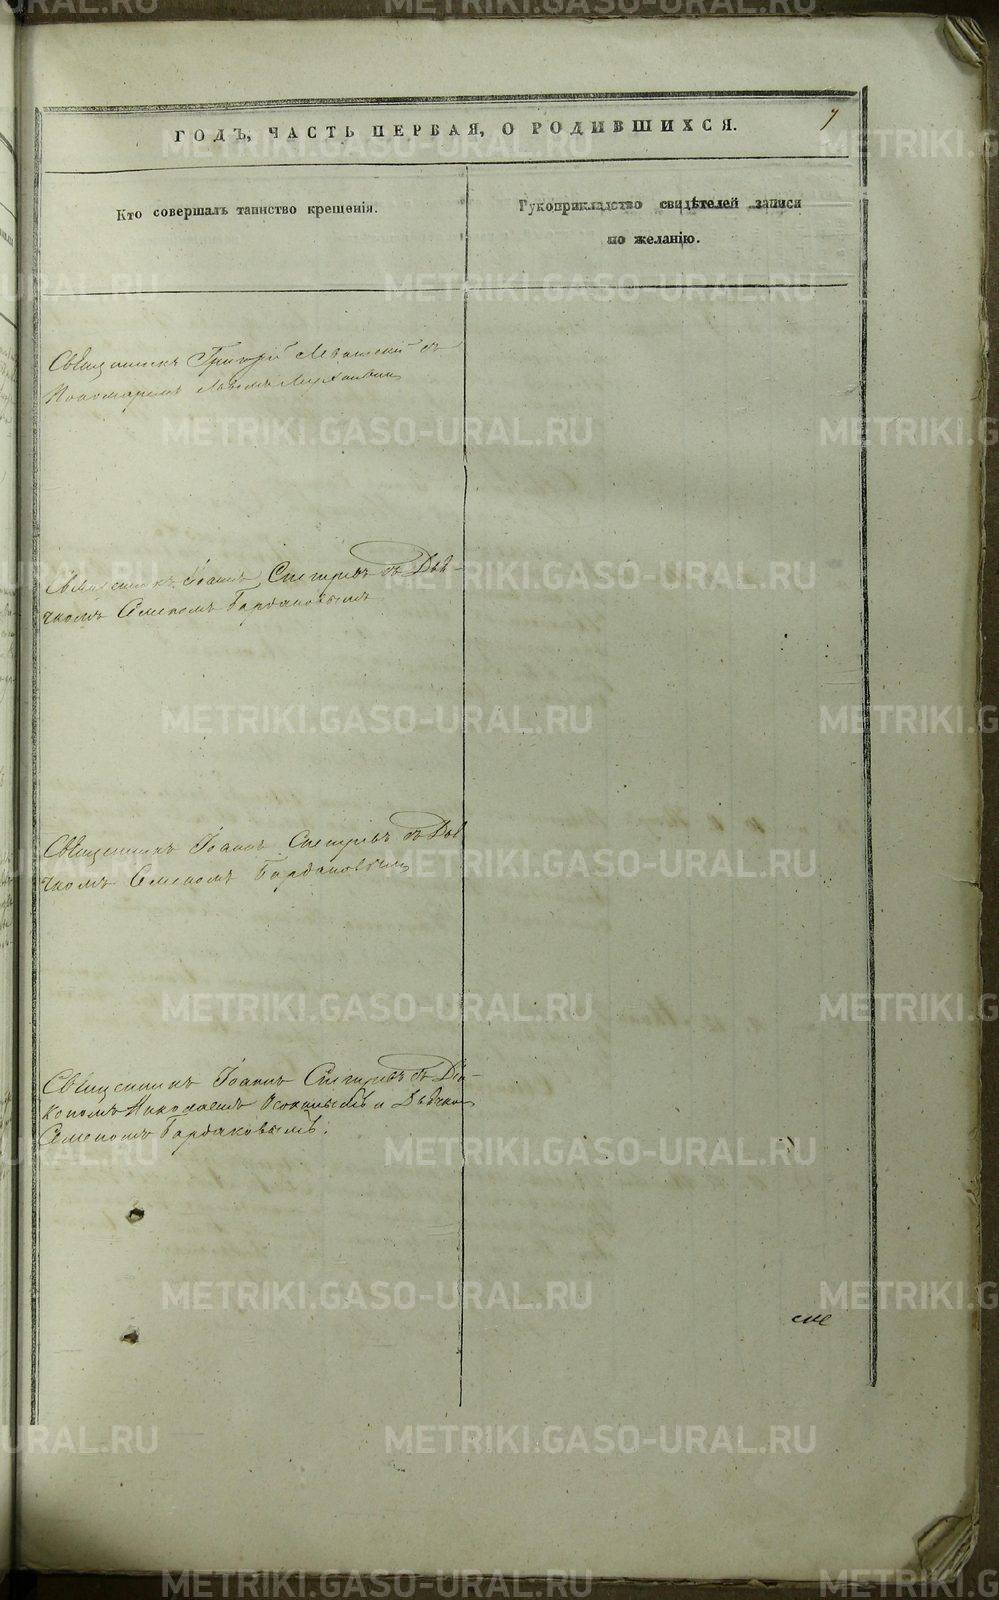 7
ГОДЪ, ЧАСТЬ ПЕРВАЯ, О РОДИВШИХСЯ.
Кто совершалъ таинство крещенія.
Рукоприкладство свидѣтелей записи
по желанію.
Священникъ Григорій съ
Пономаремъ
Священникъ Іоаннъ Снегиревъ съ Дья-
чкомъ Семеномъ Бардаковымъ
Священникъ Іоаннъ Снегиревъ съ Дья
чкомъ Семеномъ Бардаковымъ
Священникъ Іоаннъ Снегиревъ съ Діа-
кономъ Николаемъ и Дьячко
Семеномъ Бардаковымъ.
METRIKI.GASO-URAL.RU